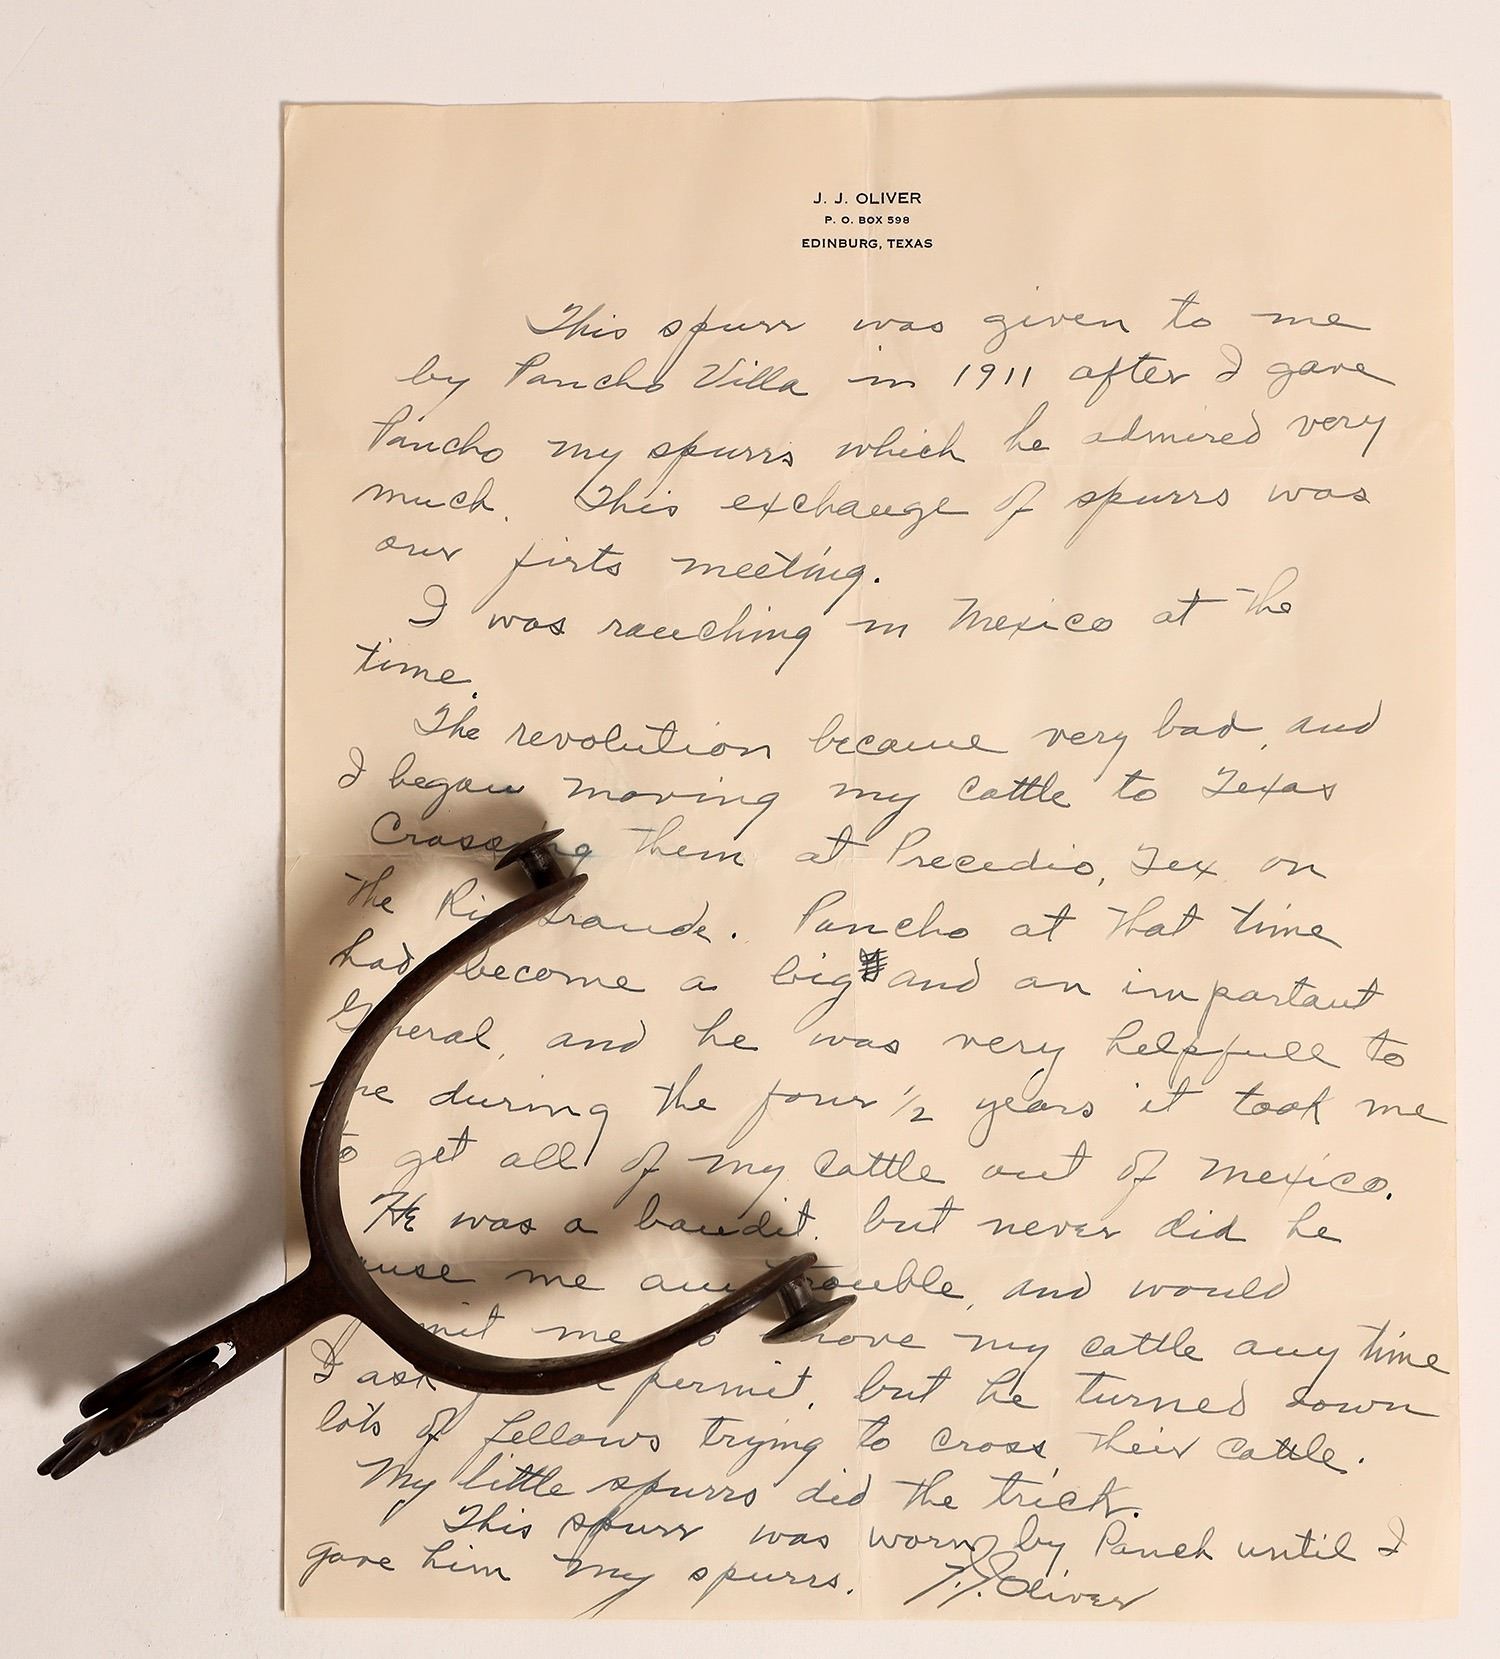 J. J. OLIVER
P. O. BOX 598
EDINBURG, TEXAS
This spurr was given to me
by Pancho Villa in 1911 after I gave
Pancho my spurrs which he admired very
much. This exchange of spurrs was
our firts meeting.
I was ranching in Mexico at the
time.
The revolution became very bad, and
I began moving my cattle to Texas
Crossing them at Precedio, Tex on
the Rio Grande. Pancho at that time
had become a big and an important
General, and he was very helpfull to
me during the four 1/2 years it took me
to get all of my cattle out of Mexico.
He was a bandit. but never did he
cause me any trouble, and would
me to move my cattle any time
I ask permit, but he turned down
lots of fellows trying to cross their cattle.
My little spurrs did the trick.
This spurr was worn by Panch until I
gave him my spurrs. J.J. Oliver